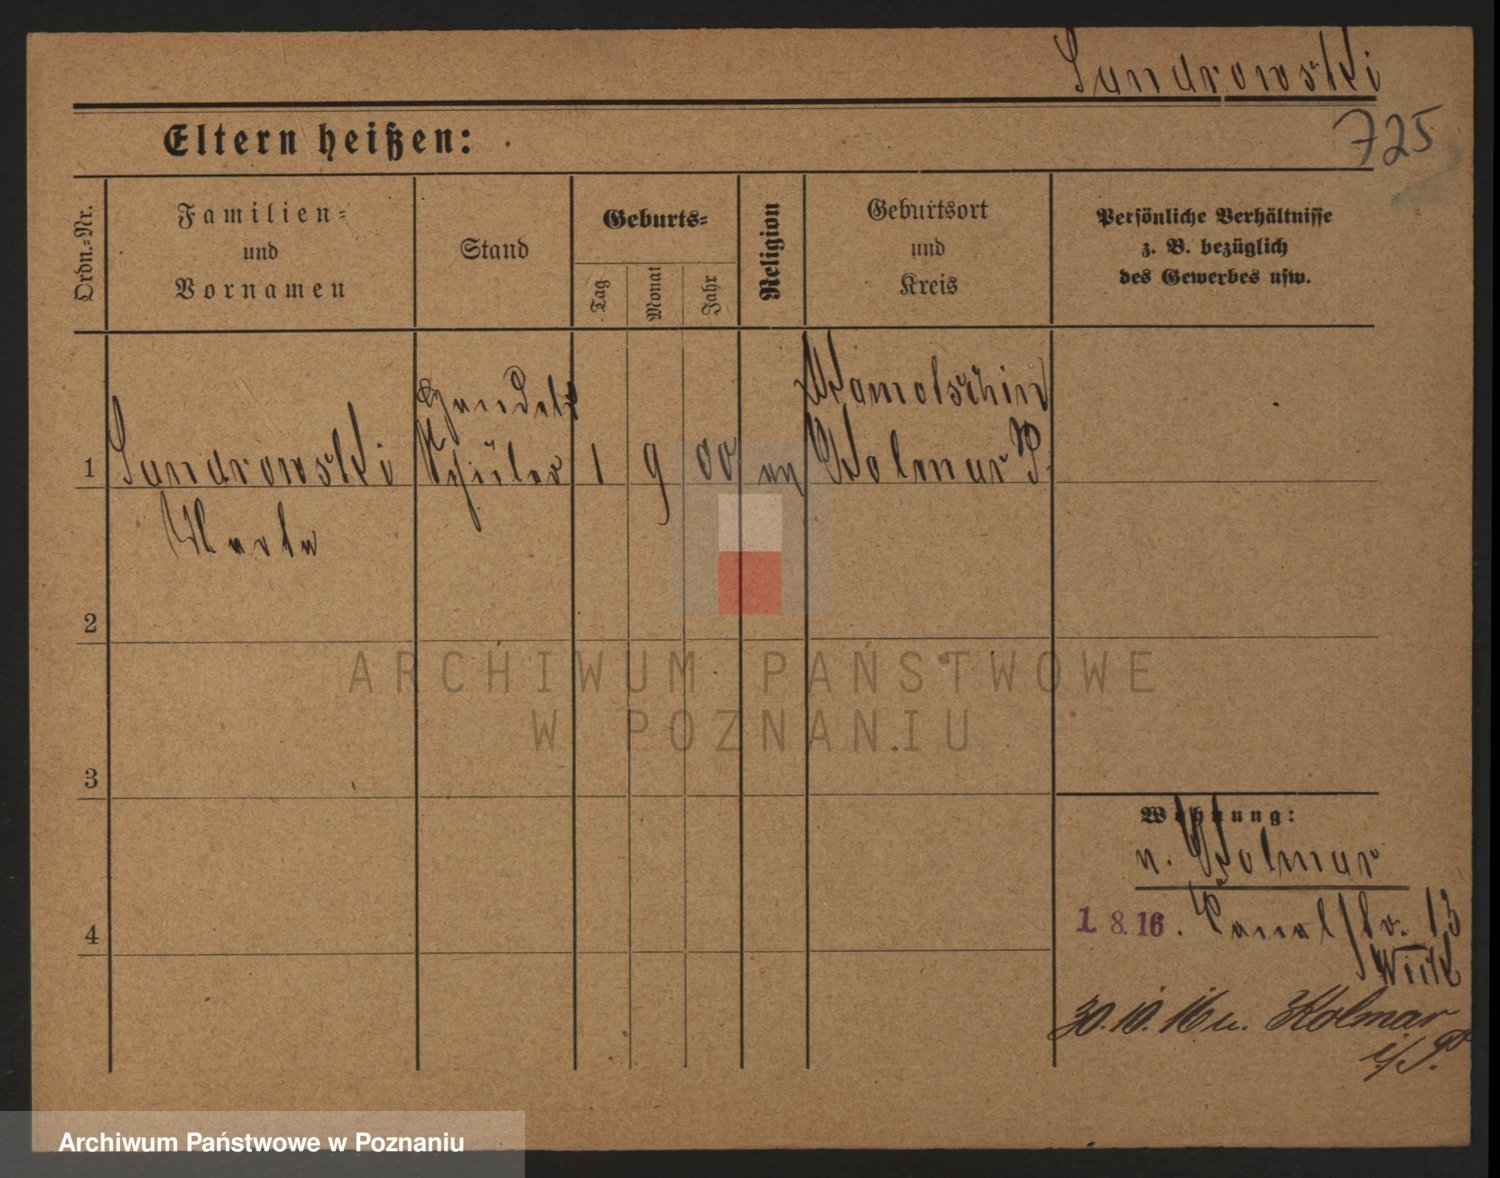 Sandrowski
725
Eltern heißen:
Ordn.-Nr.
Familien-
und
Vornamen
Stand
Geburts-
Tag
Monat
Jahr
Religion
Geburtsort
und
Kreis
Persönliche Verhältnisse
z. B. bezüglich
des Gewerbes usw.
Handels
Samotschin
1 Sandrowski Schüler 1 9 00 Kolmar P.
2
3
4
ARCHIWUM PAŃSTWOWE
W POZNANIU
Wohnung:
n. Kolmar
1. 8. 16. Kanalstr. 13
30.10.16 n. Kolmar
i/P.
Archiwum Państwowe w Poznaniu